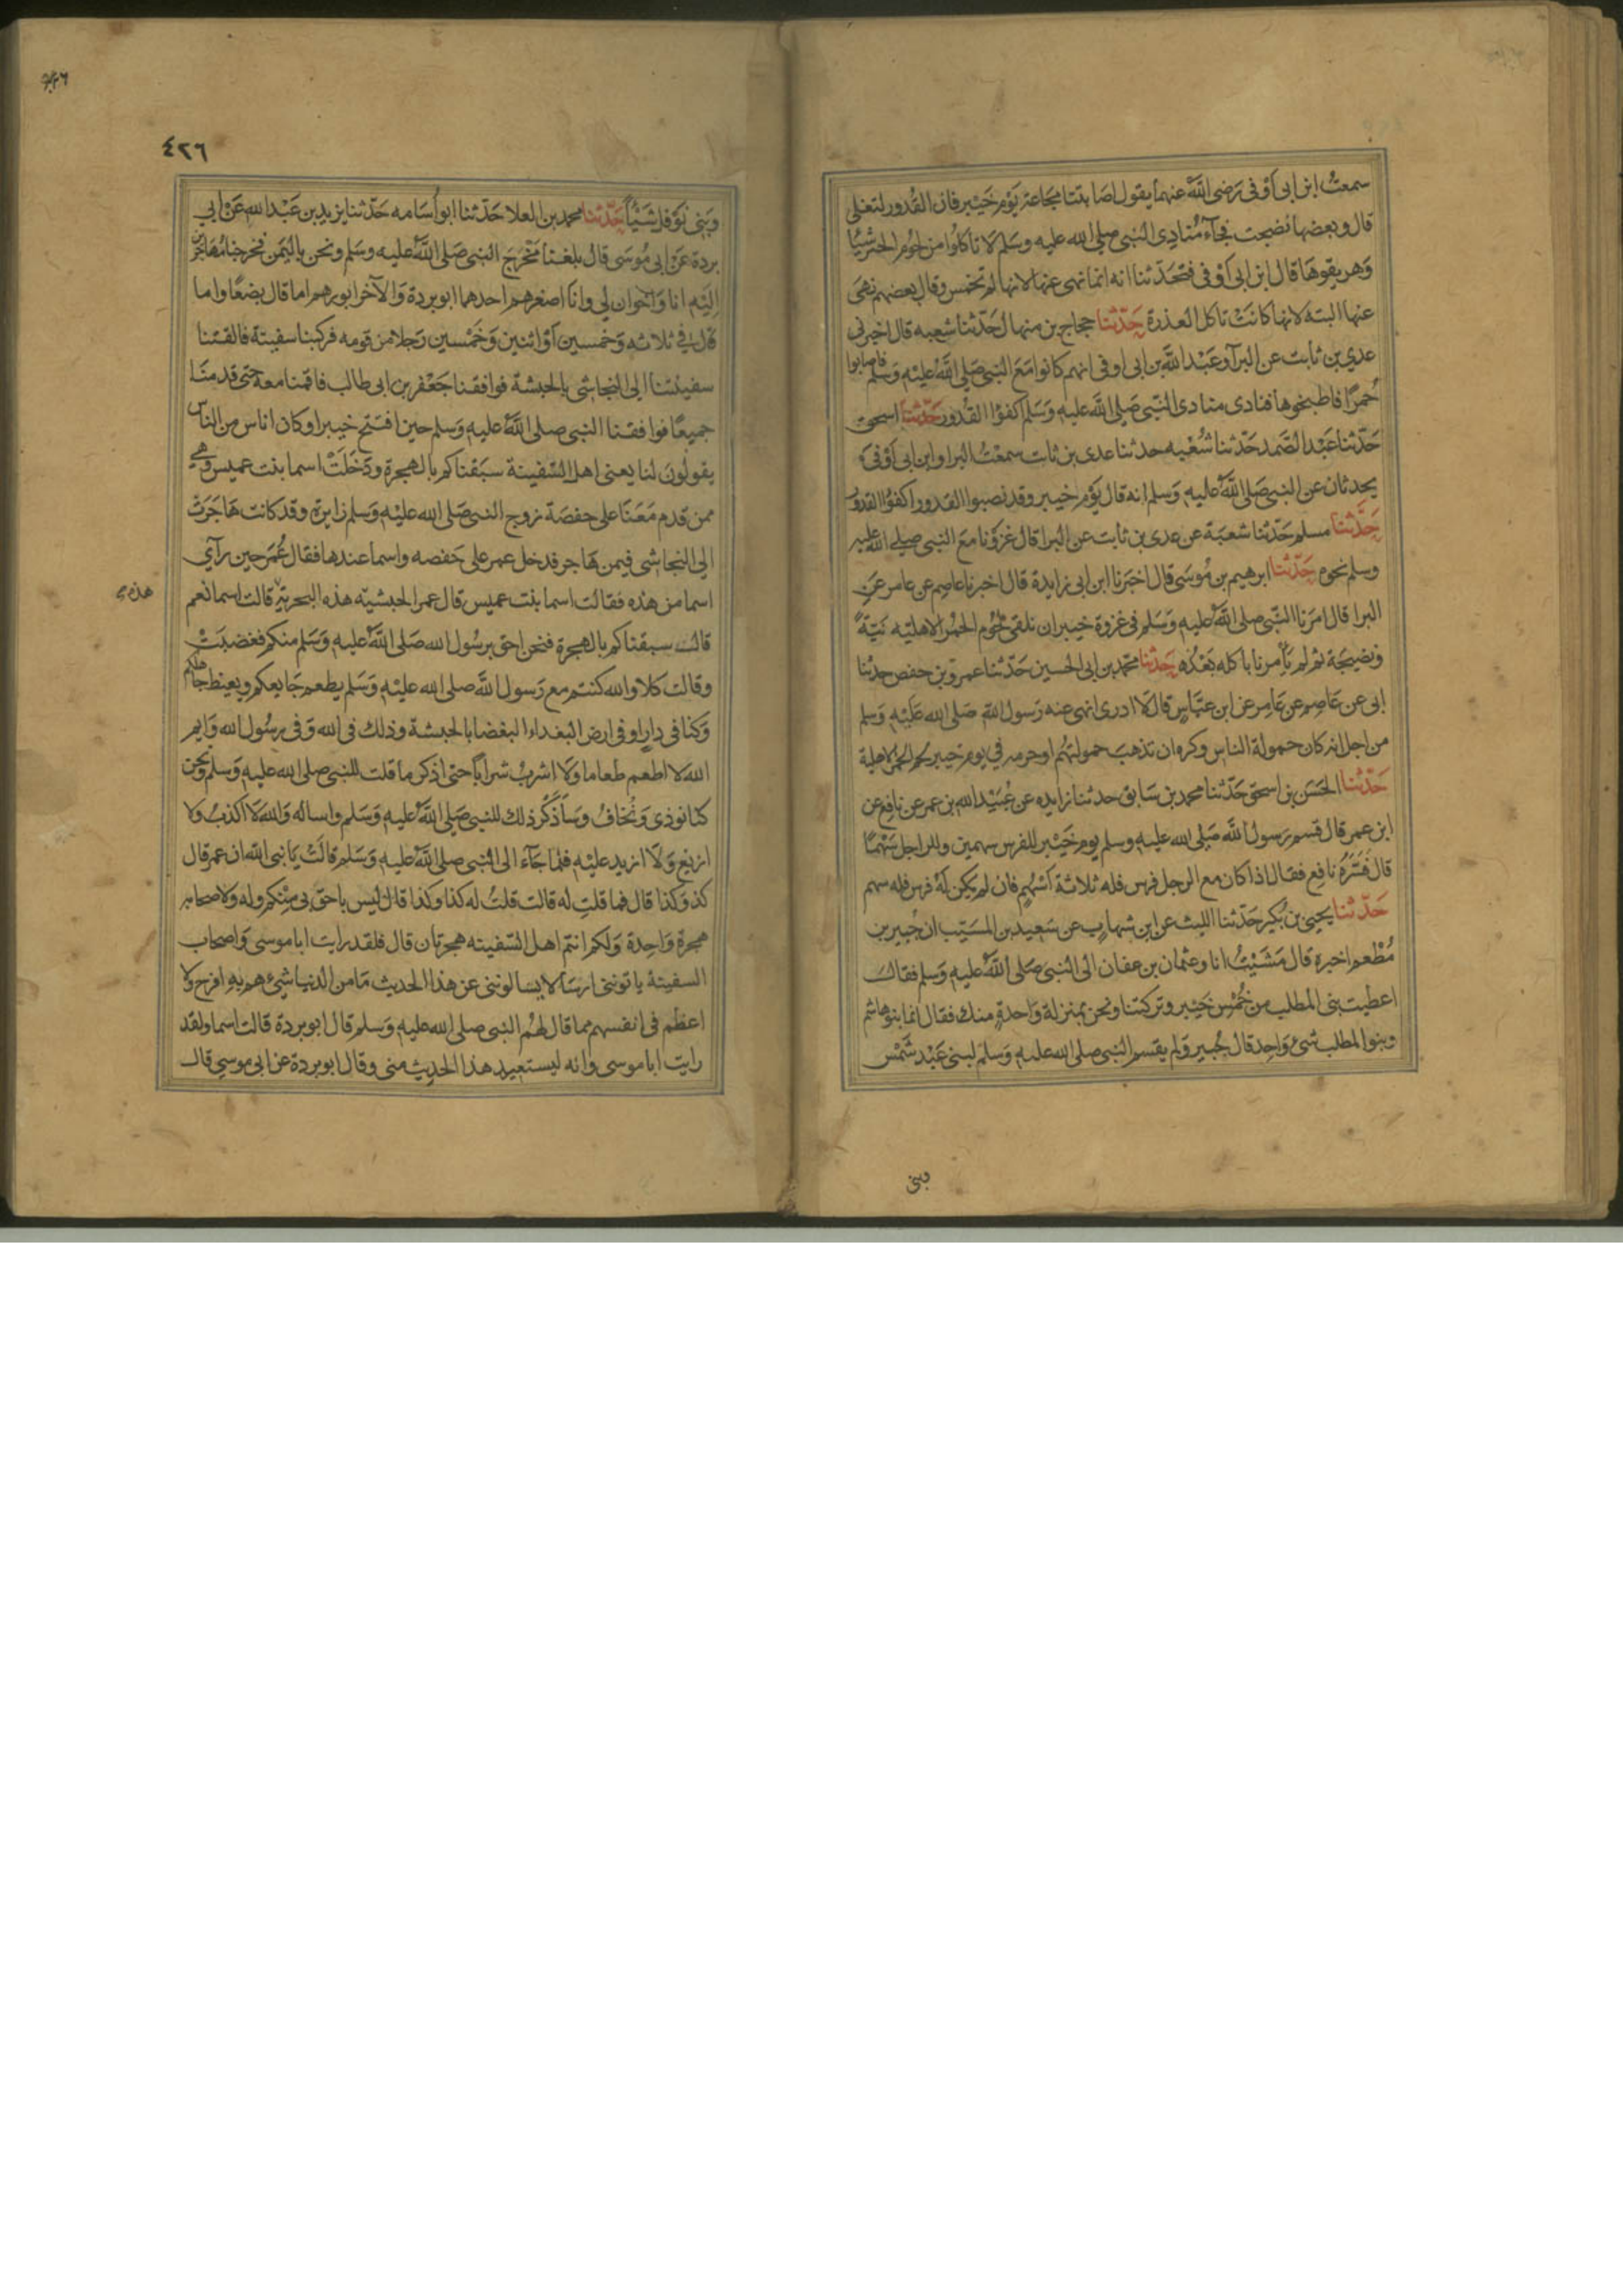 سمعتُ ابن ابى اَوْفى رَضى اللّٰه عنهما يقول اصَابتنا مجَاعة يَوْم خَيْبر فان القُدور لتغلى
قال وبعضها نضجت فجآء مُنادى النبى صلى الله عليه وسَلم لَا تاكلوُا من لحُوم الحُمر شيًا
وَاهريقوهَا قال ابن ابى اَوْفى فتحَدّثنا انه انما نهى عنها لانها لم تخمس وقال بعضهم نهىَ
عنها البتة لانها كانتْ تاكل العذرة حَدّثنا حجاج بن منهال حَدّثنا شعبه قال اخبرنى
عدى بن ثابت عن البرآ وعَبْد اللّه بن ابى اوفى انهم كانوا مَعَ النبى صَلى الله عليْه وَسَلم فاصابوا
حُمرًا فاطبخوها فنادى منادى النّبى صَلى اللّه عليه وَسَلم اكفؤا القُدور حَدّثنا اسحق
حَدّثنا عَبْد الصّمد حَدّثنا شُعْبه حدثنا عدى بن ثابت سمعْتُ البرا وابن ابى اَوْفى
يحدثان عن النبى صَلى اللّهُ عليه وَسَلم انه قال يَوْم خيبر وقد نصبوا القدور اكفؤا القدور
حَدَّثنا مسلم حَدّثنا شعبَة عن عدى بن ثابت عن البرا قال غزوْنا معَ النبى صلى الله عليه
وسلم نحوه حَدّثنا ابرهيم بن مُوسَى قال اخبَرنا ابن ابى زايدة قال اخبرنا عاصم عن عامر عَن
البرا قال امَرَنا النّبى صلى اللّه عليه وَسَلم فى غزوة خيبر ان نلقى لحُوم الحمُر الاهليه نيَة
ونضيجَة ثم لم يَأمرنا باكله بَعْدُ حَدّثنا محمّد بن ابى الحسين حَدّثنا عمر بن حفص حدثنا
ابى عن عَاصم عن عَامِر عن ابن عبّاس قال لَا ادرى انهى عنه رَسول اللّه صَلى الله عَليْه وَسلم
من اجل انه كان حمولة الناس وكره ان تذهبَ حمولتهُم او حرمه فى يوم خيبر لحم الحمر الاهلية
حَدّثنا الحَسَن بن اسحق حَدّثنا محمد بن سَابق حدثنا زايده عن عُبيْد الله بن عمر عن نافع عن
ابن عمر قال قسم رَسول اللّه صَلى الله عليه وسلم يوم خَيْبر للفرس سهمين وللراجل سَهْمًا
قال فَسَّرَهُ نافع فقال اذا كان معَ الرجل فرس فله ثلاثة اَسْهُمٍ فان لم يكن لَهُ فرس فله سهم
حَدّثنا يحيى بن بُكير حَدّثنا الليث عن ابن شهابٍ عن سَعيد بن المسَيّب ان جُبير بن
مُطْعم اخبره قال مَشَيْتُ انا وعثمان بن عفان الى النبى صَلى اللّهُ عليه وَسَلم فقال
اعطيت بنى المطلب من خُمْسِ خَيْبر وتركتنا ونحن بمنزلة وَاحدةٍ منك فقال انما بنو هاشم
وبنوا المطلب شىءٌ وَاحِد قال جُبير وَلم يقسم النبى صلى الله عليه وَسَلم لبنى عَبْد شَمْس
وبنى
٤٢٦
٤٢٦
وَبَنى نَوْفل شَيْأً حَدّثنا محمد بن العلا حَدّثنا ابو اُسَامه حَدّثنا بَريد بن عَبْد الله عَنْ ابى
بردة عَنْ ابى مُوسَى قال بلغنا مَخْرَجَ النبى صَلى اللّه عليه وسَلم ونحن باليَمن فخرجنا مُهَاجرين
اِليْه انا وَاَخَوان لى وانَا اصغرهم احدهما ابو بردة وَالآخر ابو رهم اما قال بضعًا واما
قال فى ثلاثه وَخمسين اَوْ اثنين وَخَمْسين رَجلا من قومه فركبنا سفينة فالقتنا
سفينتنا الى النجاشى بالحبشة فوافقنا جَعْفر بن ابى طالب فاقمنا معهُ حتى قدمنا
جميعًا فوافقنا النبى صلى اللّهُ عليه وَسَلم حين افتتح خيبر وكان اناس من الناس
يقولُونَ لنا يعنى اهل السّفينة سبَقناكم بالهجرة ودَخَلَتْ اسما بنت عميس وَهىَ
ممن قدم مَعَنَا على حفصَة زوج النبى صَلى الله عليْه وَسَلم زايرة وقد كانت هَاجَرَتْ
الى النجاشى فيمن هَاجر فدخل عمر على حَفصه واسما عندها فقال عُمَر حين رَآى
اسما من هٰذه فقالت اسما بنت عميس قال عمر الحبشيّه هذه البحرية قالت اسما نعم
هذه
قالت سبقناكم بالهجرة فنحن احق برسُول الله صَلى اللّهُ عليه وَسَلم منكم فغضبَتْ
وقالت كلا والله كنتم مع رَسول اللّه صلى الله عليْه وَسَلم يطعم جَايعكم ويعظ جاهلكم
وَكنا فى دارٍ او فى ارض البُعَداء البغضا بالحبشة وذلك فى الله وَفى رسُول الله وَايم
الله لا اطعم طعاما وَلَا اشربُ شرابًا حتى اذكر ما قلت للنبى صلى الله عليه وَسلم ونحن
كنا نوذى وَنُخَافُ وسَاَذكُر ذلك للنبى صَلى اللّه عليه وَسَلم واساله وَالله لَا اكذبُ ولا
ازيغ وَلَا ازيد عليْه فلما جَآء الى النبى صلى اللّه عليه وَسَلم قالَتْ يَا نبى الله ان عمر قال
كذا وكذا قال فما قلتِ له قالت قلتُ له كذا وكذا قال ليس باحق بى مِنْكم وله ولاصحابه
هجرة وَاحِدة وَلكم انتم اهل السّفينه هجرتان قال فلقد رايت ابا موسى وَاصحاب
السفينة ياتوننى ارسَالا يسَالوننى عن هذا الحديث مَا من الدنيا شىءٌ هم به افرح ولا
اعظَم فى انفسهم مما قال لهُم النبى صلى الله عليه وَسلم قال ابو بردة قالت اسما ولقد
رايت ابا موسى وانه ليستعيد هذا الحديث منى وقال ابو بردة عن ابى موسى قال